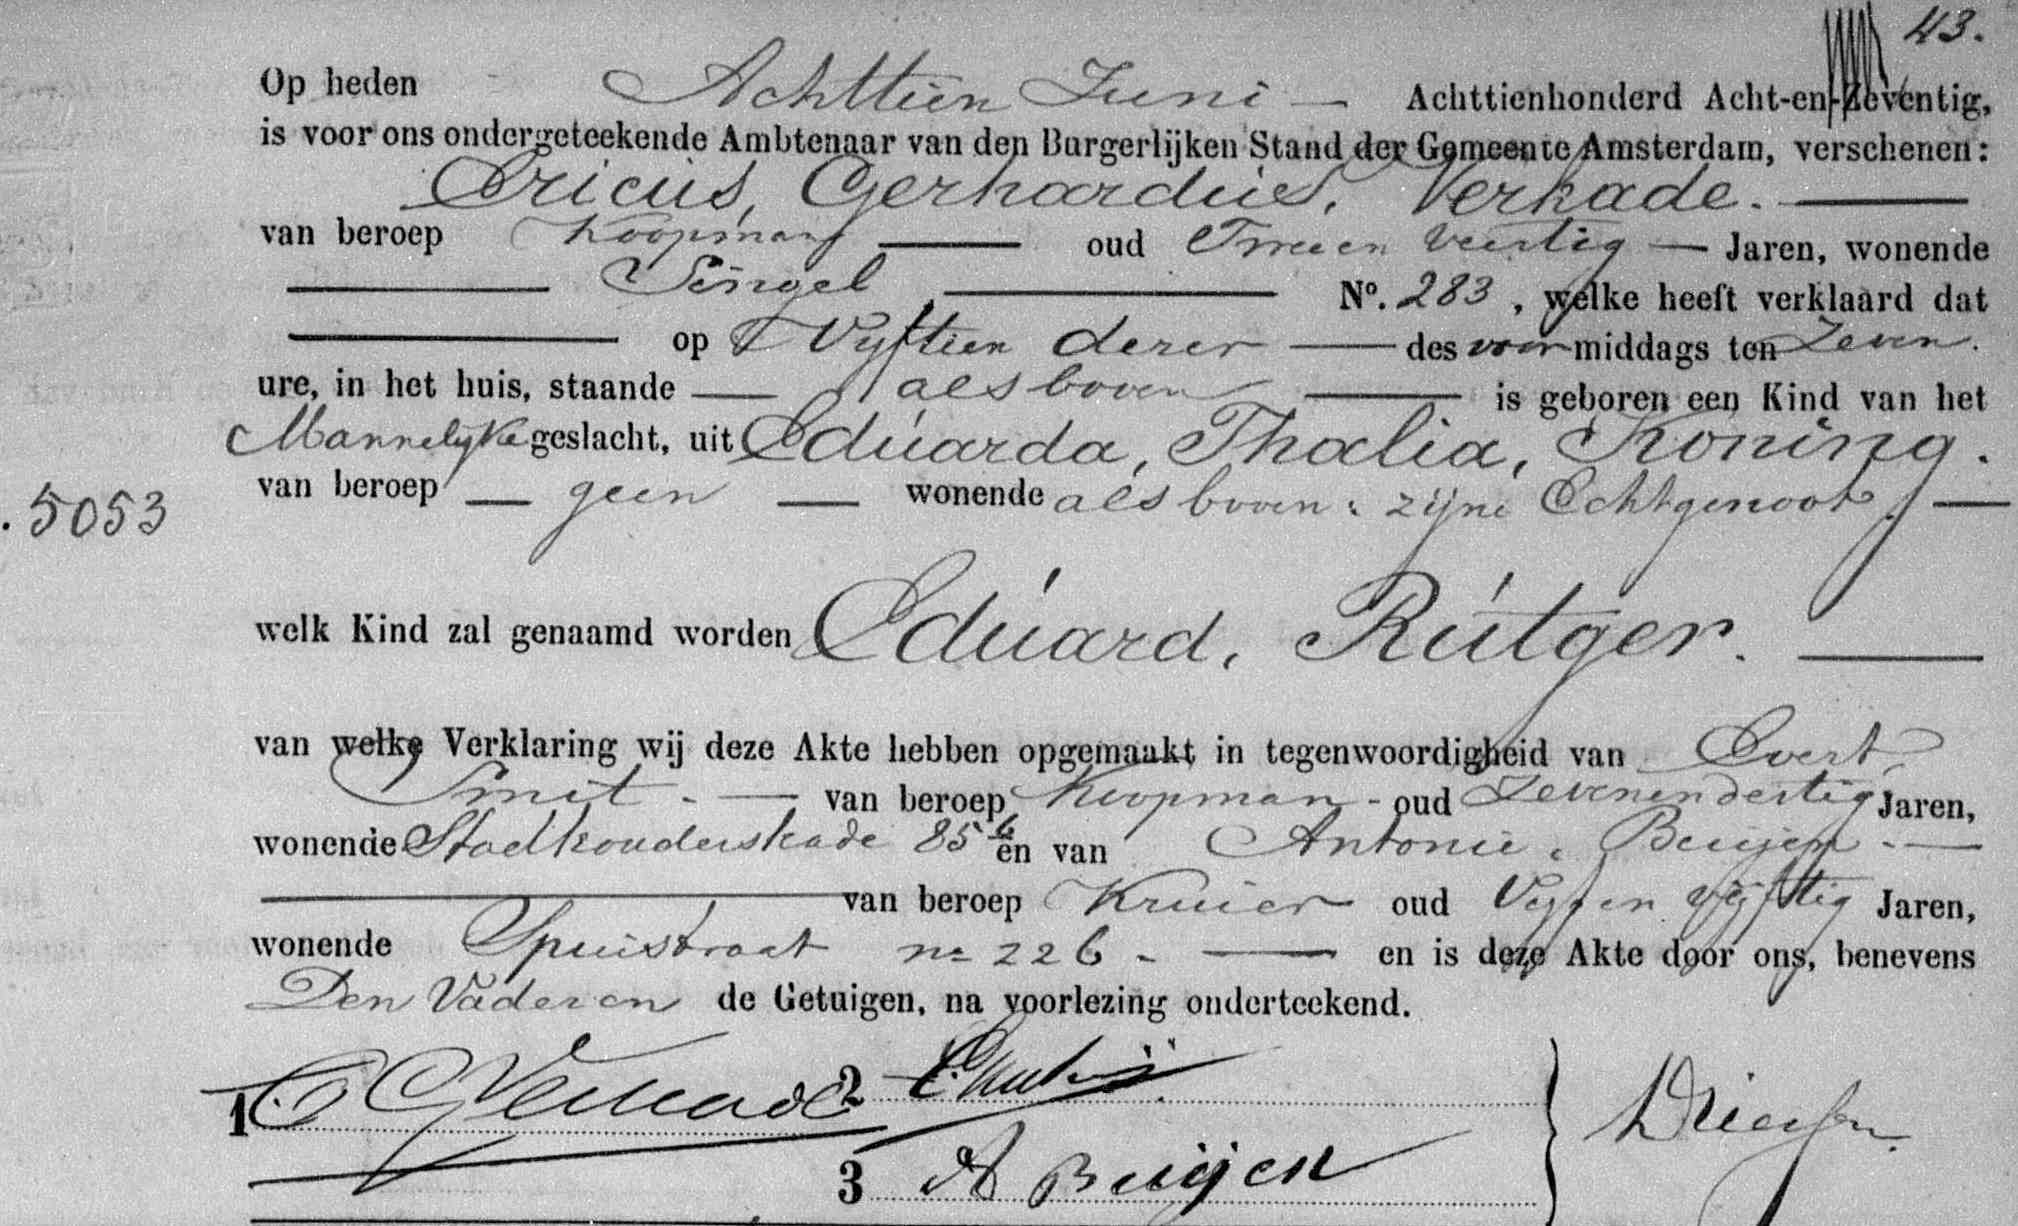 43.
Op heden Achttien Juni — Achttienhonderd Acht-en-Zeventig,
is voor ons ondergeteekende Ambtenaar van den Burgerlijken Stand der Gemeente Amsterdam, verschenen:
Ericus, Gerhardus, Verkade. —
van beroep Koopman — oud Tweeen Veertig — Jaren, wonende
— Singel — No. 283, welke heeft verklaard dat
— op Vyftien dezer — des voormiddags ten Zeven.
ure, in het huis, staande — als boven — is geboren een Kind van het
Mannelyke geslacht, uit Eduarda, Thalia, Koning.
van beroep — geen — wonende als boven, zijne Echtgenoot. —
. 5053
welk Kind zal genaamd worden Eduard, Rutger. —
van welke Verklaring wij deze Akte hebben opgemaakt in tegenwoordigheid van Evert
Smit. — van beroep Koopman - oud Zevenendertig Jaren,
wonende Stadhouderskade 85 en van Antonie, Beuijen. —
— van beroep Kruier oud Vyfen vijftig Jaren,
wonende Spuistraat no 226. — en is deze Akte door ons, benevens
Den Vader en de Getuigen, na voorlezing onderteekend.
1 E G Verkade 2
3 A Beuijen